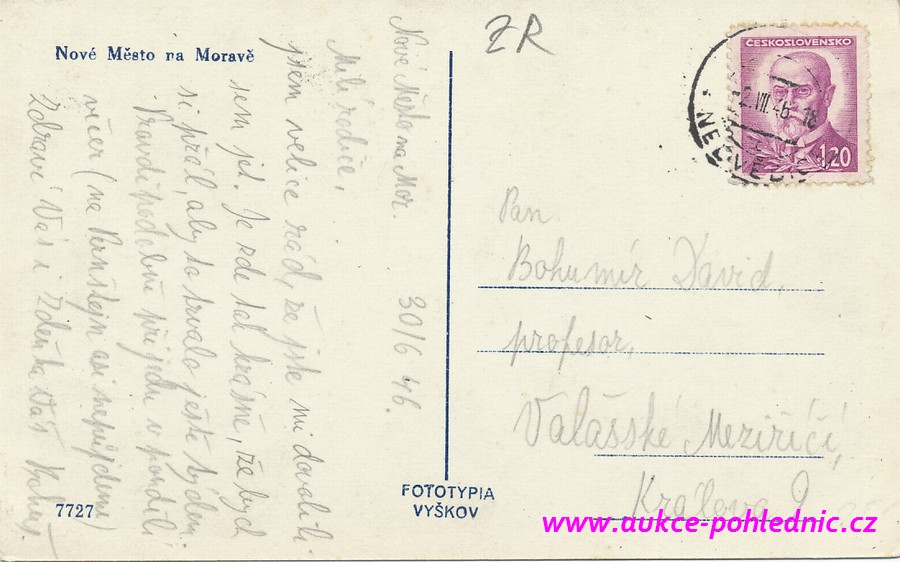 Nové Město na Moravě
ZR
ČESKOSLOVENSKO
2.VIII.46-18
NEDVĚD
1.20
Nové Město na Mor. 30/6 46.
Milí rodiče,
jsem velice rád, že jste mi dovolili
sem jet. Je zde tak krásně, že bych
si přál, aby to trvalo ještě týden.
Pravděpodobně přijedu v pondělí
večer (na Pernštejn asi nepojedeme)
Zdraví Vás i Zdeňka Váš
Pan
Bohumír David,
profesor,
Valašské Meziříčí,
Králova 9
7727
FOTOTYPIA
VYŠKOV
www.aukce-pohlednic.cz